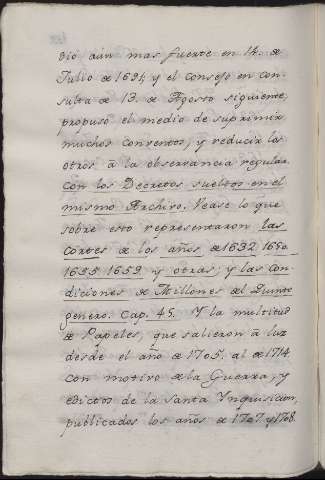 dió aún mas fuerte en 14. de
Julio de 1694, y el Consejo en con-
sulta de 13. de Agosto siguiente,
propuso el medio de suprimir
muchos conventos, y reducir los
otros à la observancia regular.
con los Decretos sueltos en el
mismo Archivo. Vease lo que
sobre esto representaron las
cortes de los años de 1632. 1650.
1655. 1659. y otras; y las con-
diciones de Millones del Quinto
genero. Cap. 45. Y la multitud
de Papeles, que salieron à luz
desde el año de 1705. al de 1714
con motivo de la Guerra, y
edictos de la Santa Ynquisicion,
publicados los años de 1707 y 1708.